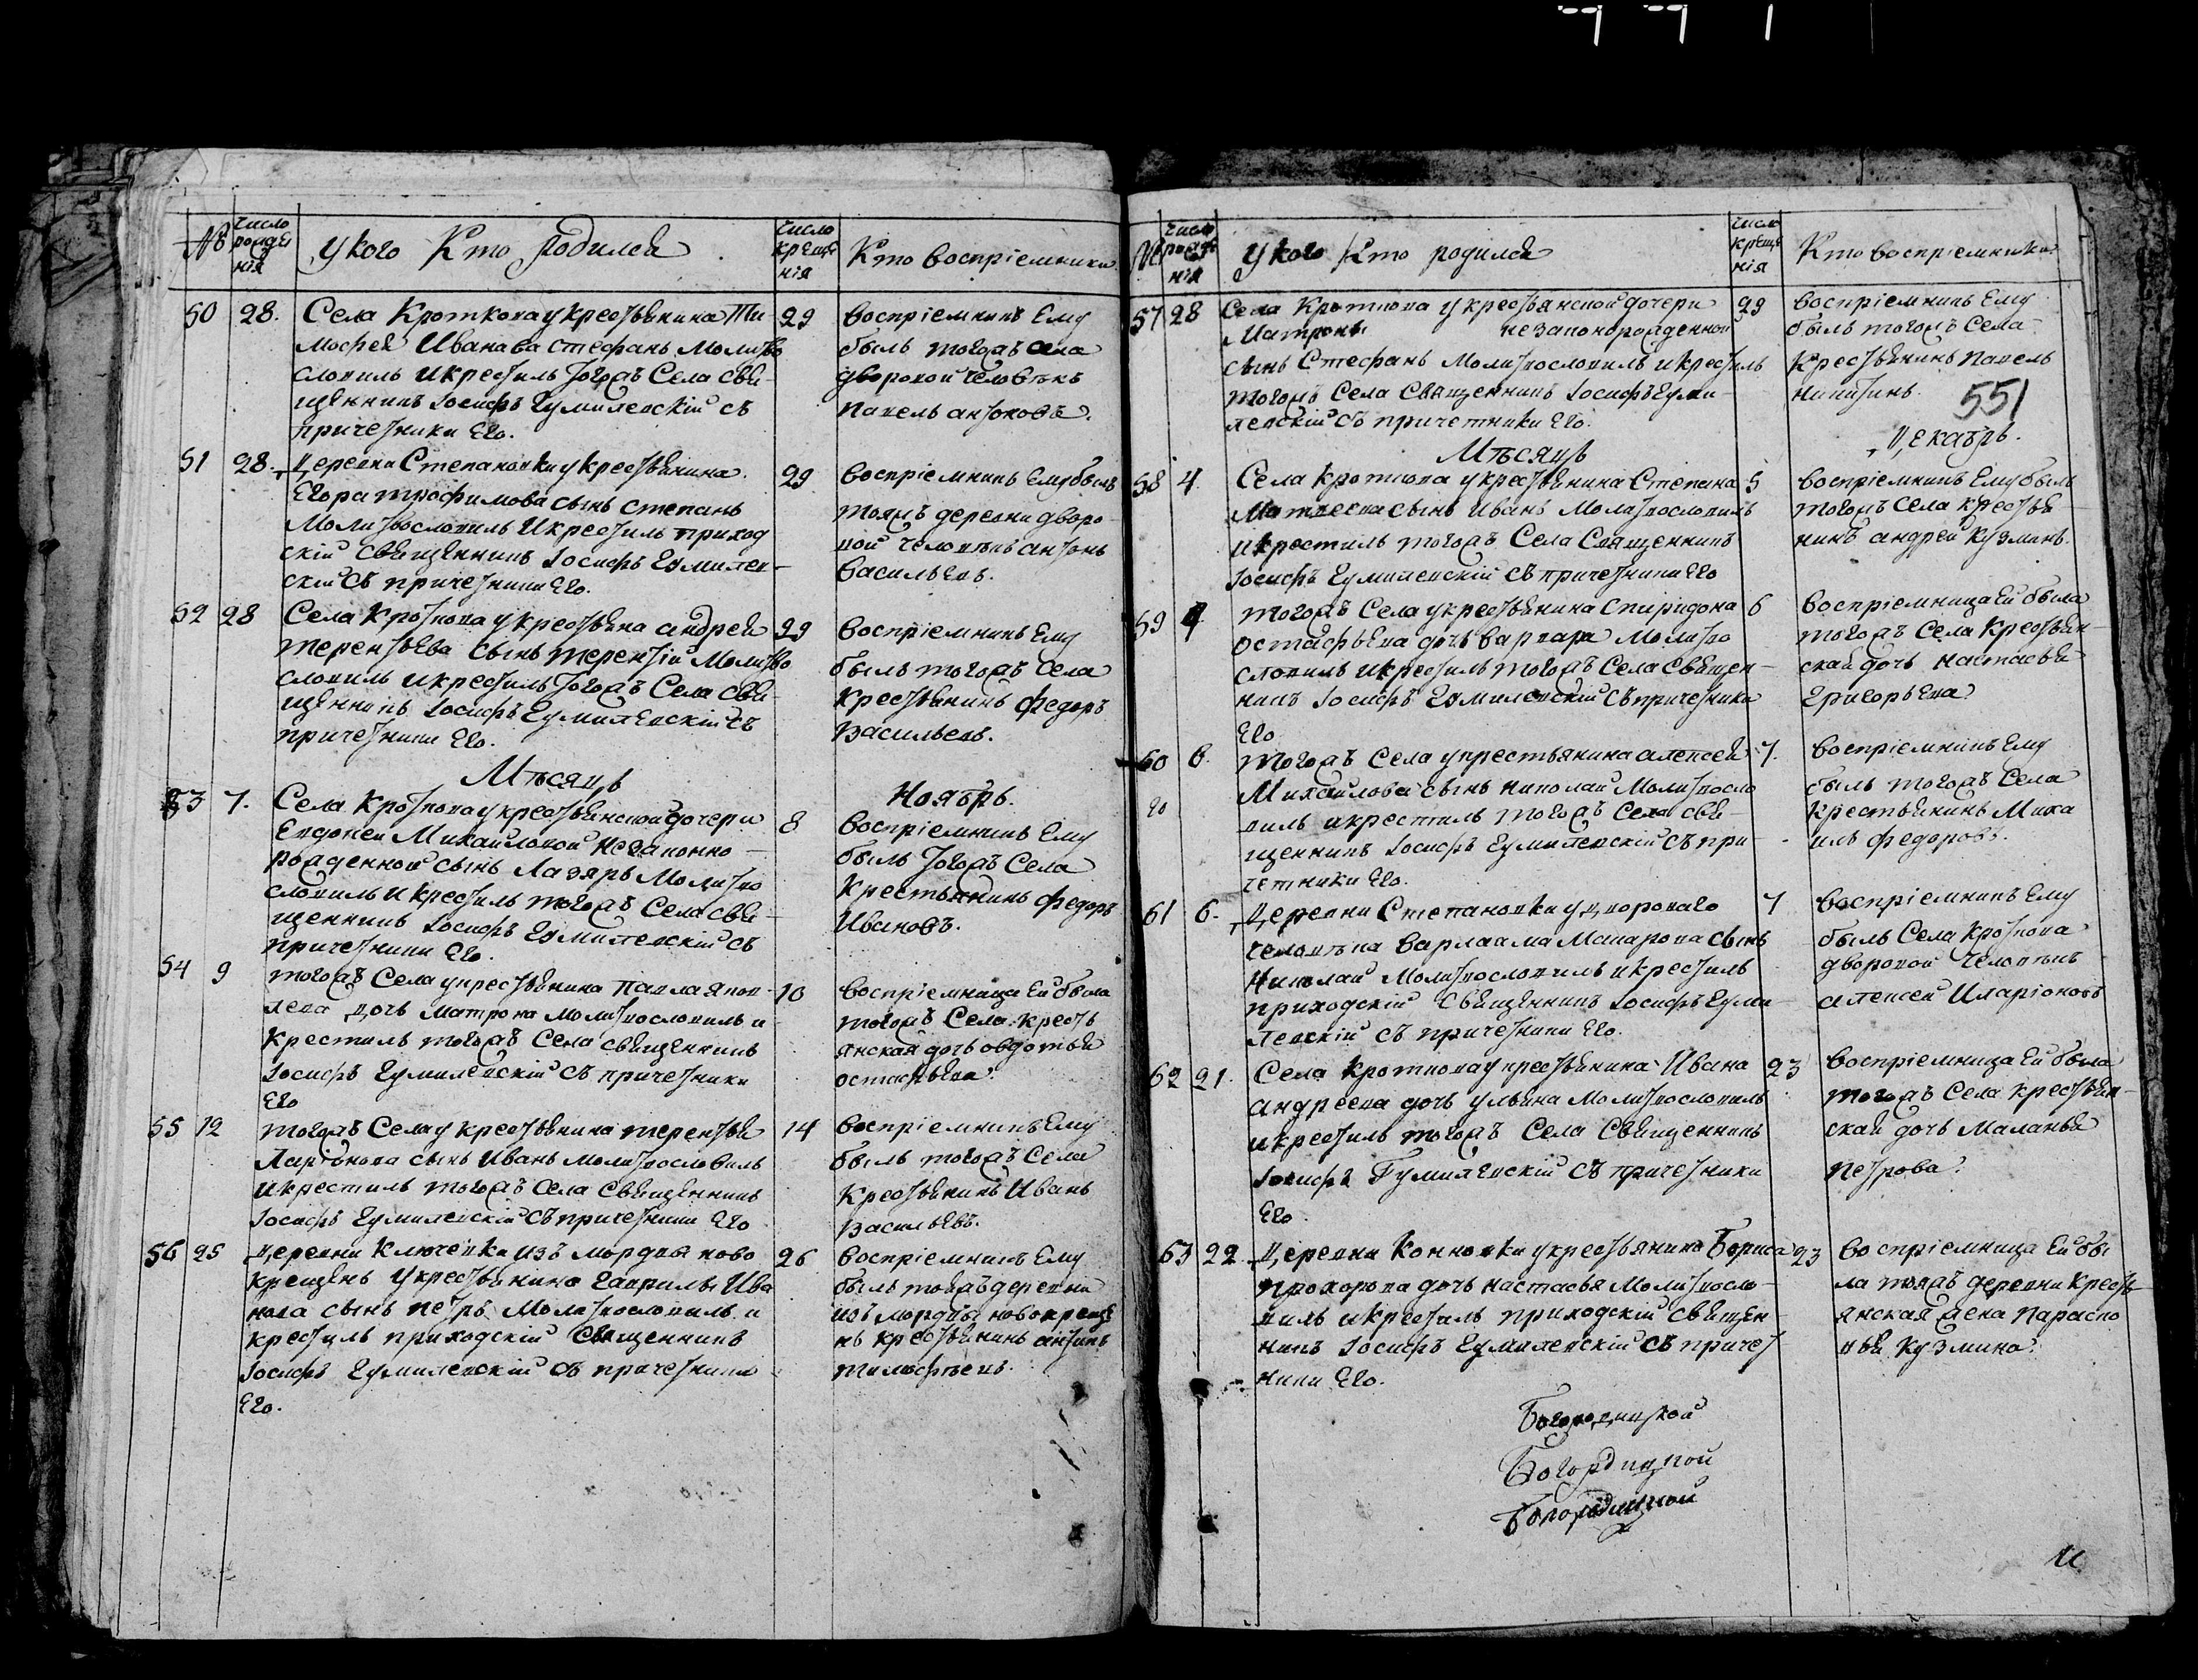 №
число рожде нія
У кого Кто родился
число креще нія
Кто воспріемники
50 28. Села Кроткова у крестьянина Ти 29
мофея Иванова сынъ Стефанъ Молитво
словилъ и крестилъ тогожъ Села свя-
щенникъ Іосифъ Гумилевскій съ
причетники Его.
воспріемникъ Ему
былъ тогожъ села
дворовой человѣкъ
Павелъ Антоновъ.
51 28. Деревни Степановки у крестьянина 29
Егора трофимова сынъ степанъ
Молитвословилъ И крестилъ приход
скій священникъ Іосифъ Гумилев-
скій съ причетники Его.
воспріемникъ Ему былъ
тояжъ деревни дворо-
вой человѣкъ антонъ
васильевъ.
52 28 Села Кроткова у крестьяна андрея 29
терентьева сынъ терентій Молитво
словилъ и крестилъ тогожъ Села свя-
щенникъ Іосифъ Гумилевскій съ
причетники Его.
воспріемникъ Ему
былъ тогожъ села
крестьянинъ федоръ
Васильевъ.
Мѣсяцъ Ноябрь.
53 7. Села Кроткова у крестьянской дочери 8
Евдокеи Михайловой незаконно-
рожденной сынъ Лазарь Молитво
словилъ и крестилъ тогожъ Села свя-
щенникъ Іосифъ Гумилевскій съ
причетники Его.
воспріемникъ Ему
былъ тогожъ Села
Крестьянинъ федоръ
Ивановъ.
54 9 тогожъ Села у крестьянина Павла яков- 10
лева дочь матрона молитвословилъ и
крестилъ тогожъ Села священникъ
Іосифъ Гумилевскій съ причетники
Его
воспріемница Ей была
тогожъ Села крестъ
янская дочь овдотья
остафьева.
55 12 тогожъ Села у крестьянина терентья 14
Ларіонова сынъ Иванъ молитвословилъ
и крестилъ тогожъ села священникъ
Іосифъ Гумилевскій съ причетники Его
воспріемникъ Ему
былъ тогожъ Села
крестьянинъ Иванъ
васильевъ.
56 25 Деревни Ключевки изъ мордвы ново 26
крещенъ у крестьянина гаврилы Ива
нова сынъ петръ молитвословилъ и
крестилъ приходскій священникъ
Іосифъ Гумилевскій съ причетники
Его.
воспріемникъ Ему
былъ тояжъ деревни
изъ мордвы новокреще
нъ крестьянинъ антипъ
тимофѣевъ.
№
число рожде нія
У кого Кто родился
число креще нія
Кто воспріемники
57 28 Села Кроткова у крестьянской дочери 29
Матроны незаконорожденной
сынъ Стефанъ молитвословилъ и крестилъ
тогожъ Села священникъ Іосифъ Гуми-
левскій съ причетники Его.
воспріемникъ Ему
былъ тогожъ Села
Крестьянинъ павелъ
никитинъ.
551
Мѣсяцъ Декабрь.
58 4. Села Кроткова у крестьянина Степана 5
Матвеева сынъ Иванъ Молитвословилъ
и крестилъ тогожъ Села Священникъ
Іосифъ Гумилевскій съ причетники Его
воспріемникъ Ему былъ
тогожъ села крестья
нинъ андрей кузминъ.
59 4 тогожъ Села у крестьянина Спиридона 6
остафьева дочь варвара Молитво
словилъ и крестилъ тогожъ Села священ-
никъ Іосифъ Гумилевскій съ причетники
Его
воспріемница Ей была
тогожъ Села крестьян-
ская дочь настасья
григорьева
60 6. тогожъ Села у крестьянина алексея 7.
20
Михайлова сынъ николай Молитвосло
вилъ и крестилъ тогожъ Села свя-
щенникъ Іосифъ Гумилевскій съ при-
четники Его.
воспріемникъ Ему
былъ тогожъ Села
Крестьянинъ Миха
илъ федоровъ.
61 6. Деревни Степановки у двороваго 7
человѣка варлаама Макарова сынъ
Николай Молитвословилъ и крестилъ
приходскій священникъ Іосифъ Гуми-
левскій съ причетники Его.
воспріемникъ Ему
былъ Села Кроткова
дворовой человѣкъ
алексей Иларіоновъ
62 21. Села Кроткова у крестьянина Ивана 23
андреева дочь ульяна молитвословилъ
и крестилъ тогожъ Села Священникъ
Іосифъ Гумилевскій съ причетники
Его.
воспріемница Ей была
тогожъ Села крестьян-
ская дочь Маланья
петрова.
63 22. Деревни Конновки у крестьянина Бориса 23
прохорова дочь настасья молитвосло-
вилъ и крестилъ приходскій священ
никъ Іосифъ Гумилевскій съ причет
ники Его.
воспріемница Ей бы
ла тояжъ деревни крестъ
янская жена параско
вья кузмина.
Богородицкой
Богородицкой
Богородицкой